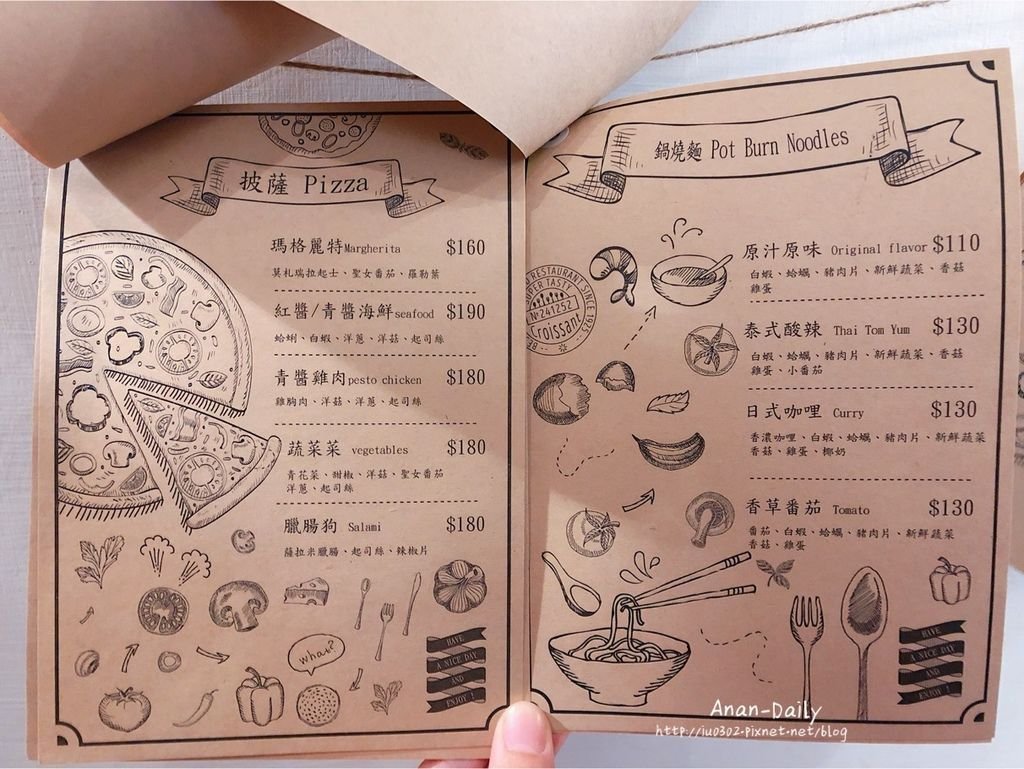 披薩 Pizza
瑪格麗特Margherita $160
莫札瑞拉起士、聖女番茄、羅勒葉
紅醬/青醬海鮮seafood $190
蛤蜊、白蝦、洋蔥、洋菇、起司絲
青醬雞肉pesto chicken $180
雞胸肉、洋菇、洋蔥、起司絲
蔬菜菜 vegetables $180
青花菜、甜椒、洋菇、聖女番茄
洋蔥、起司絲
臘腸狗 Salami $180
薩拉米臘腸、起司絲、辣椒片
what?
HAVE
A NICE DAY
AND
ENJOY !
鍋燒麵 Pot Burn Noodles
RESTAURANT SINCE 1925
SUPER TASTY
№241252
Croissant
原汁原味 Original flavor $110
白蝦、蛤蠣、豬肉片、新鮮蔬菜、香菇
雞蛋
泰式酸辣 Thai Tom Yum $130
白蝦、蛤蠣、豬肉片、新鮮蔬菜、香菇
雞蛋、小番茄
日式咖哩 Curry $130
香濃咖哩、白蝦、蛤蠣、豬肉片、新鮮蔬菜
香菇、雞蛋、椰奶
香草番茄 Tomato $130
番茄、白蝦、蛤蠣、豬肉片、新鮮蔬菜
香菇、雞蛋
HAVE
A NICE DAY
AND
ENJOY !
Anan-Daily
http://iu0302.pixnet.net/blog